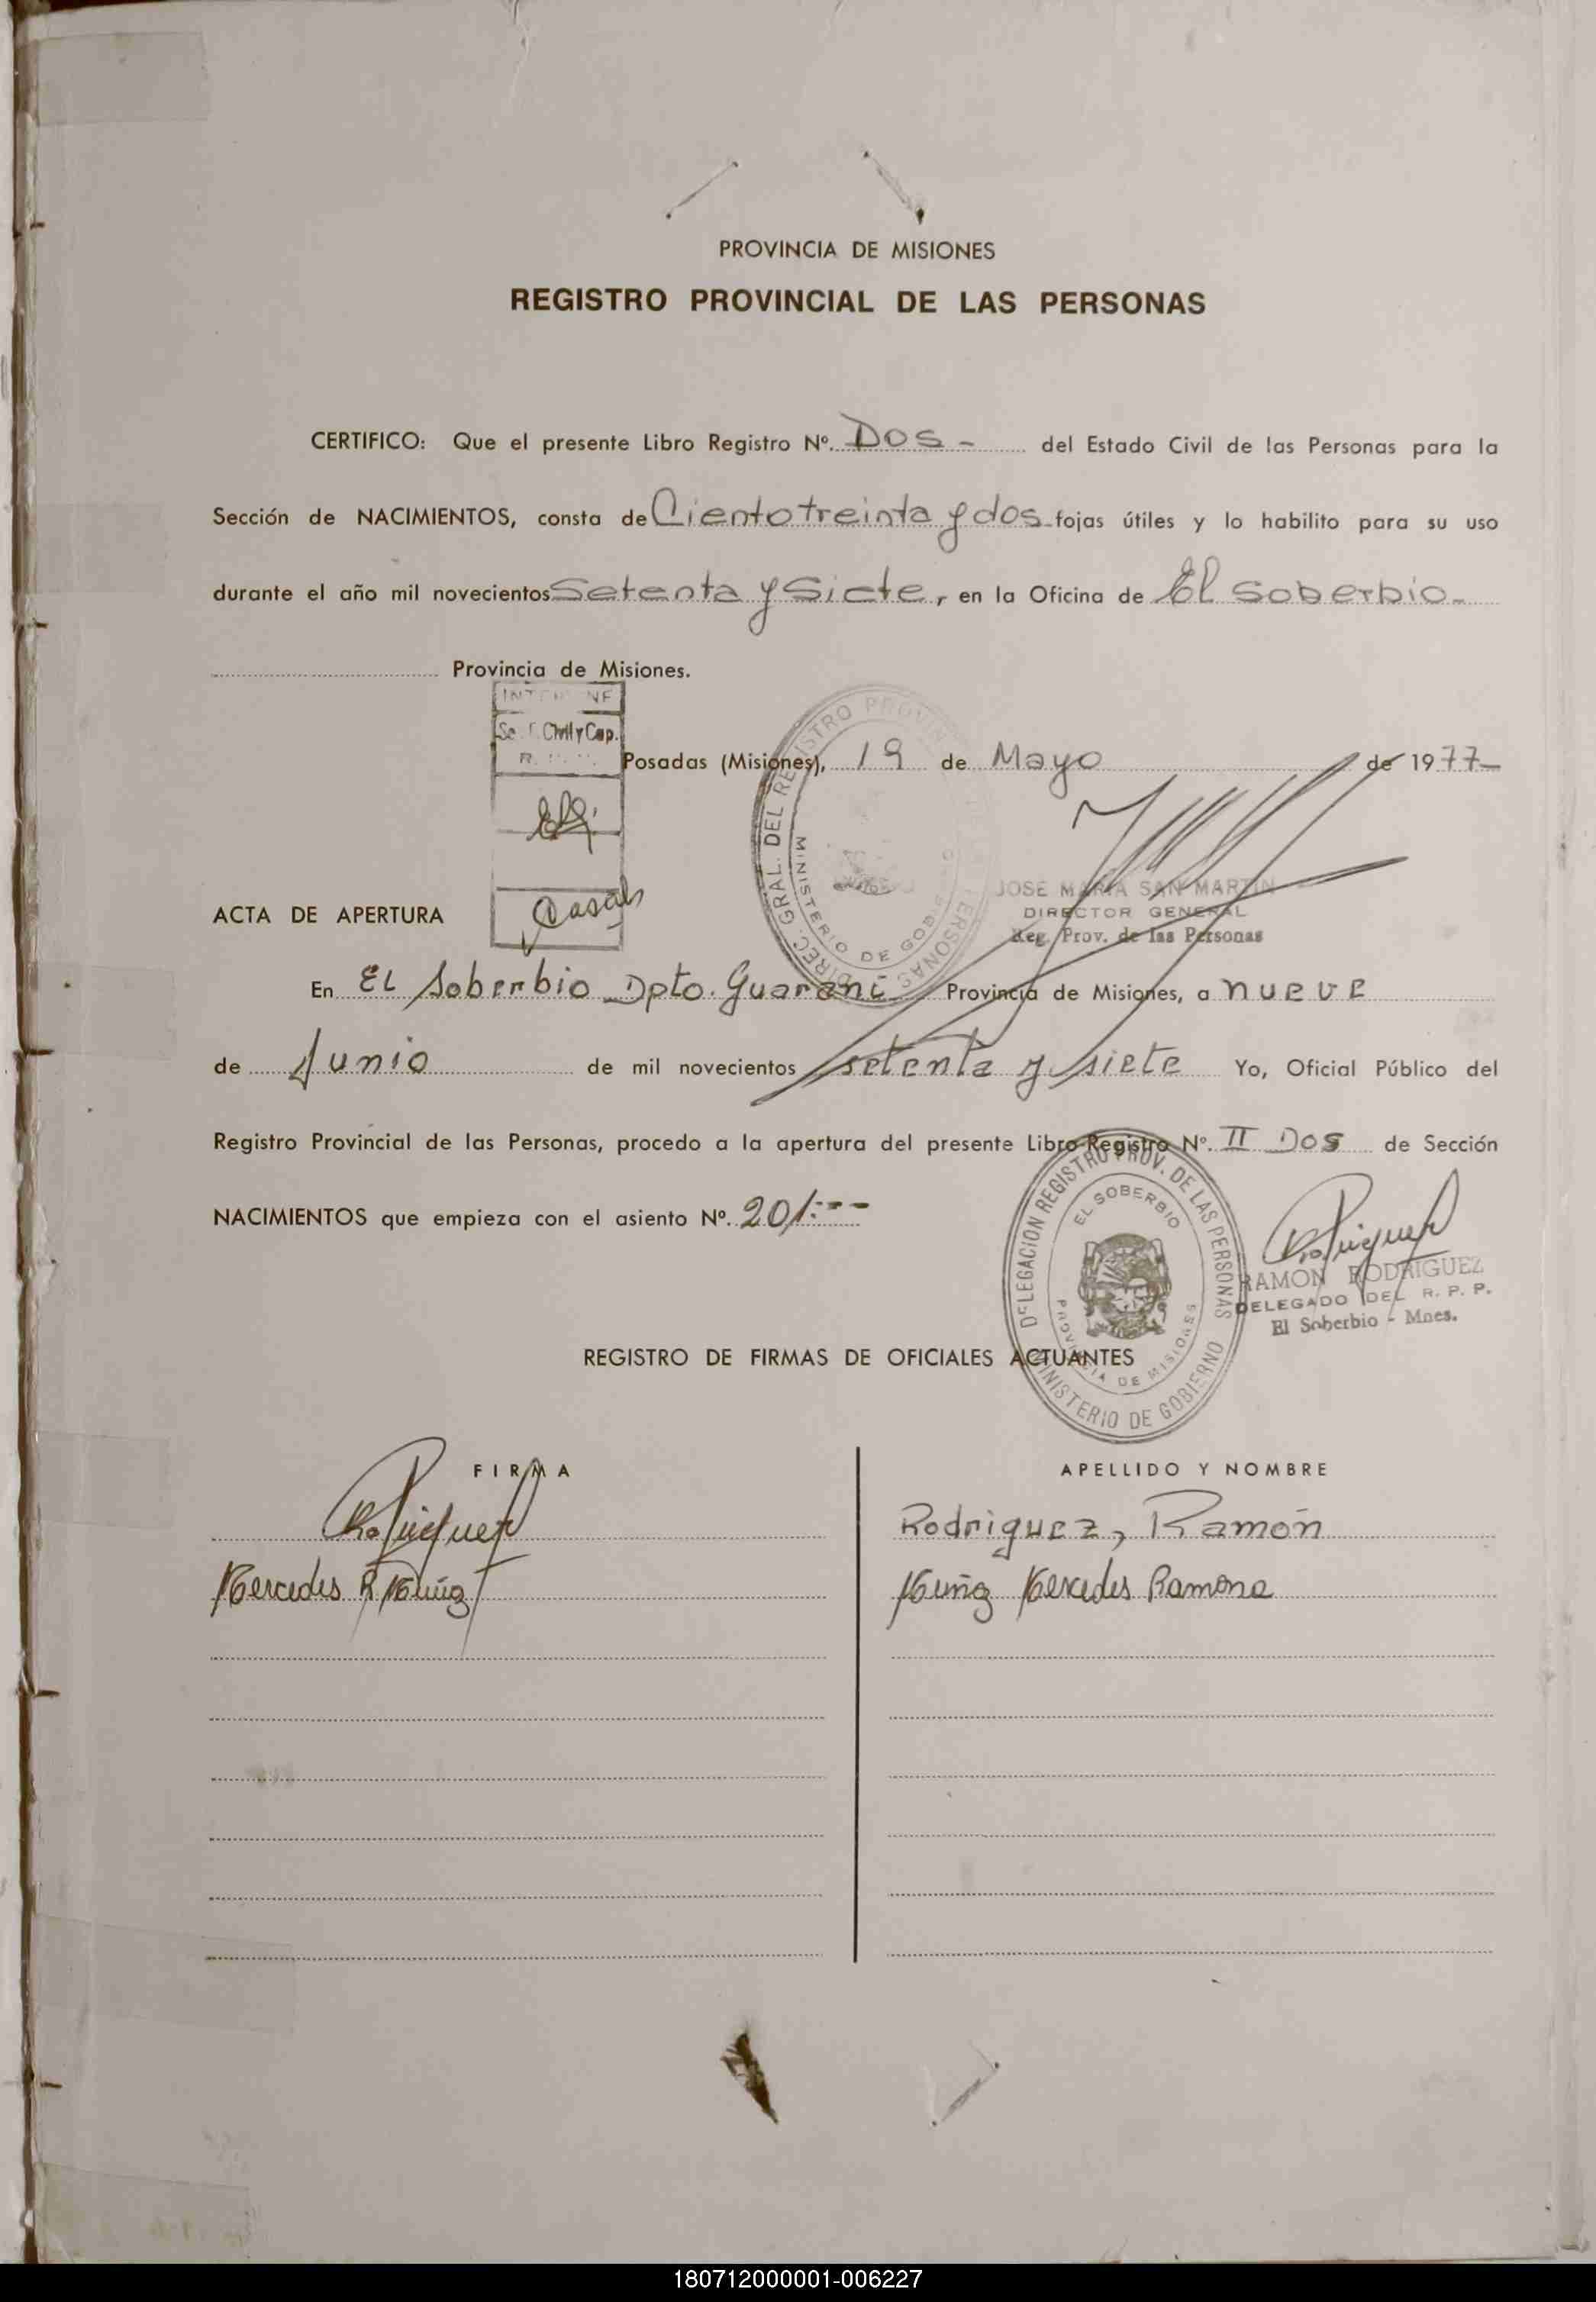 PROVINCIA DE MISIONES
REGISTRO PROVINCIAL DE LAS PERSONAS
CERTIFICO: Que el presente Libro Registro Nº. Dos - del Estado Civil de las Personas para la
Sección de NACIMIENTOS, consta de Ciento treinta y dos fojas útiles y lo habilito para su uso
durante el año mil novecientos Setenta y Siete, en la Oficina de El Soberbio-
Provincia de Misiones.
Civil y Cap.
Posadas (Misiones), 19 de Mayo de 1977-
DIREC. GRAL. DEL REGISTRO PROVIN PERSONAS
MINISTERIO DE GOBIE
JOSE MARIA SAN MARTIN
DIRECTOR GENERAL
Reg. Prov. de las Personas
ACTA DE APERTURA
En El Soberbio Dpto. Guaraní Provincia de Misiones, a nueve
de Junio de mil novecientos setenta y siete Yo, Oficial Público del
Registro Provincial de las Personas, procedo a la apertura del presente Libro Registro Nº. II Dos de Sección
NACIMIENTOS que empieza con el asiento Nº. 201:--
DELEGACION REGISTRO PROV. DE LAS PERSONAS
EL SOBERBIO
PROVINCIA DE MISIONES
MINISTERIO DE GOBIERNO
RAMON RODRIGUEZ
DELEGADO DEL R. P. P.
El Soberbio - Mnes.
REGISTRO DE FIRMAS DE OFICIALES ACTUANTES
FIRMA APELLIDO Y NOMBRE
Rodriguez, Ramón
Mercedes R. Muñoz Muñoz Mercedes Ramona
180712000001-006227